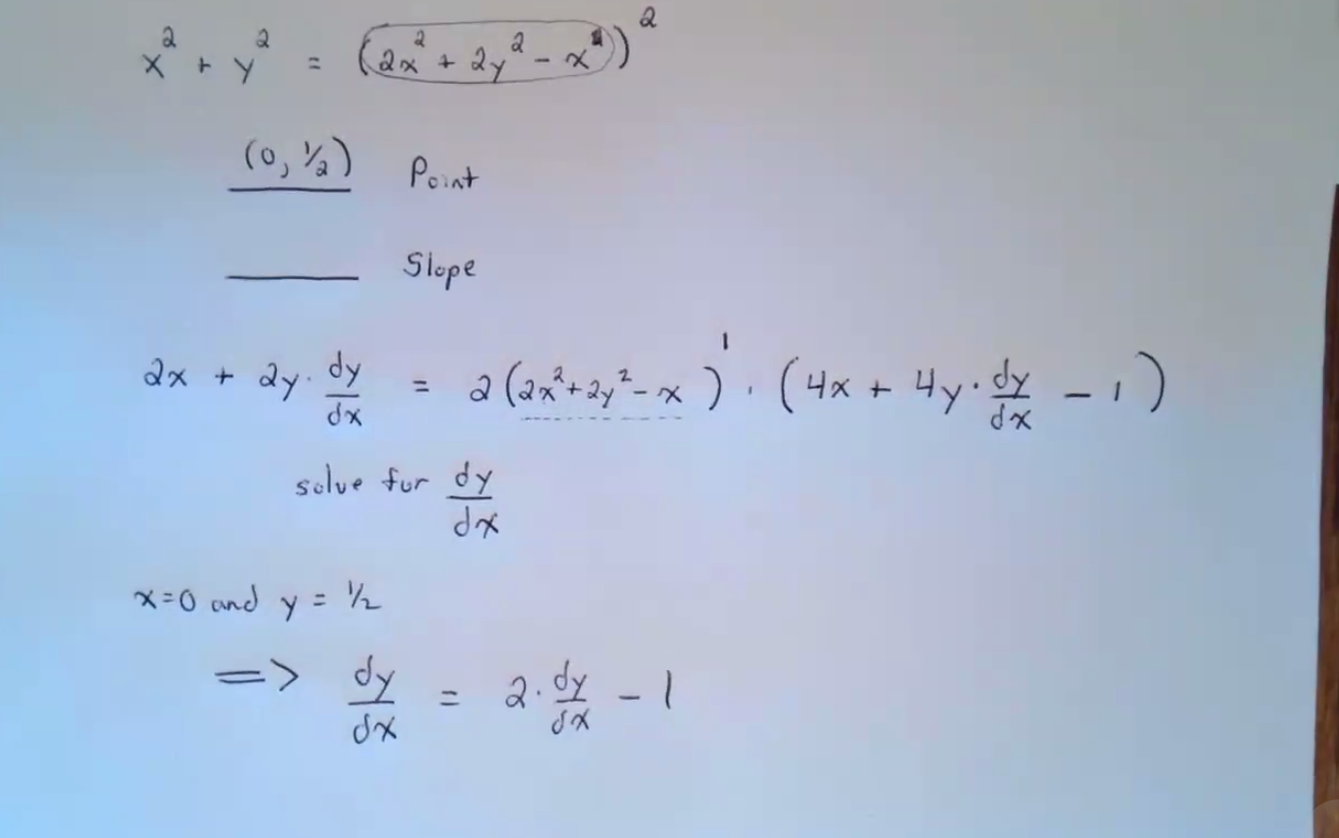 x² + y² = (2x² + 2y² - x)²
(0, 1/2) Point
Slope
2x + 2y · dy/dx = 2(2x²+2y²-x)¹ · (4x + 4y · dy/dx - 1)
solve for dy/dx
x=0 and y = 1/2
=> dy/dx = 2 · dy/dx - 1